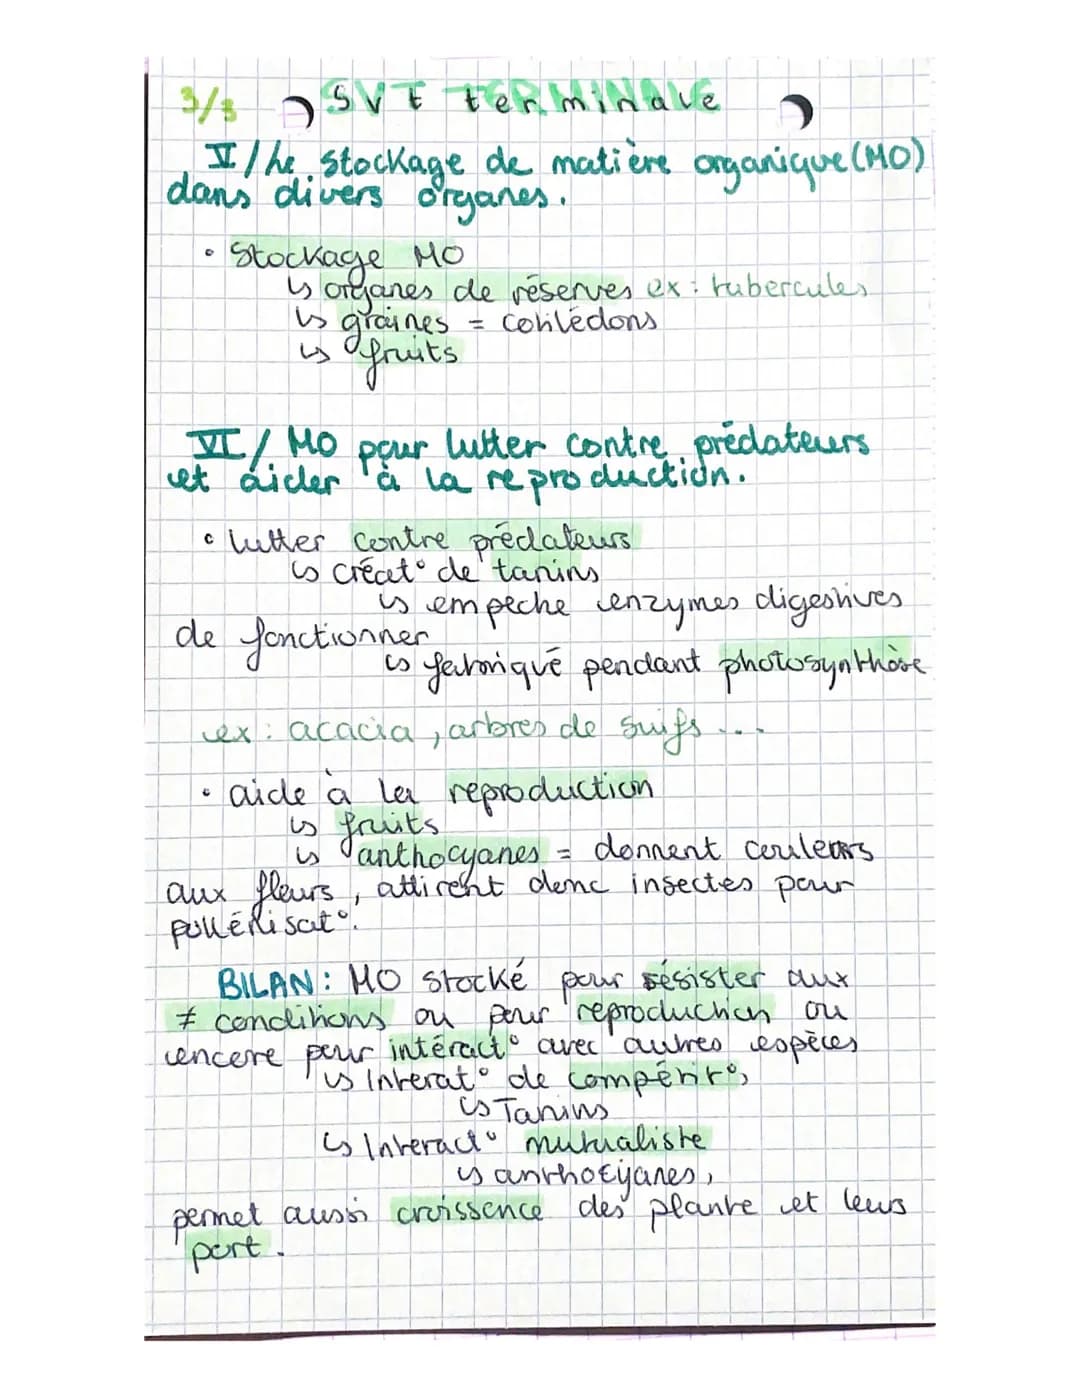 3/3 SVT terminale
V/ Le stockage de matière organique (MO)
dans divers organes.
• Stockage MO
↳ organes de réserves ex : tubercules
↳ graines = cotilédons
↳ fruits
VI/ MO pour lutter contre prédateurs
et aider à la reproduction.
• lutter contre prédateurs
↳ créat° de tanins
↳ empeche enzymes digestives
de fonctionner
↳ fabriqué pendant photosynthèse
ex : acacia, arbres de suifs ...
• aide à la reproduction
↳ fruits
↳ anthocyanes = donnent couleurs
aux fleurs, attirent donc insectes pour
pollénisat°.
BILAN : MO stocké pour résister aux
≠ conditions ou pour reproduction ou
encore pour intéract° avec autres espèces
↳ Interat° de compétit°,
↳ Tanins
↳ Interact° mutualiste
↳ anthocyanes,
permet aussi croissence des plante et leurs
port.